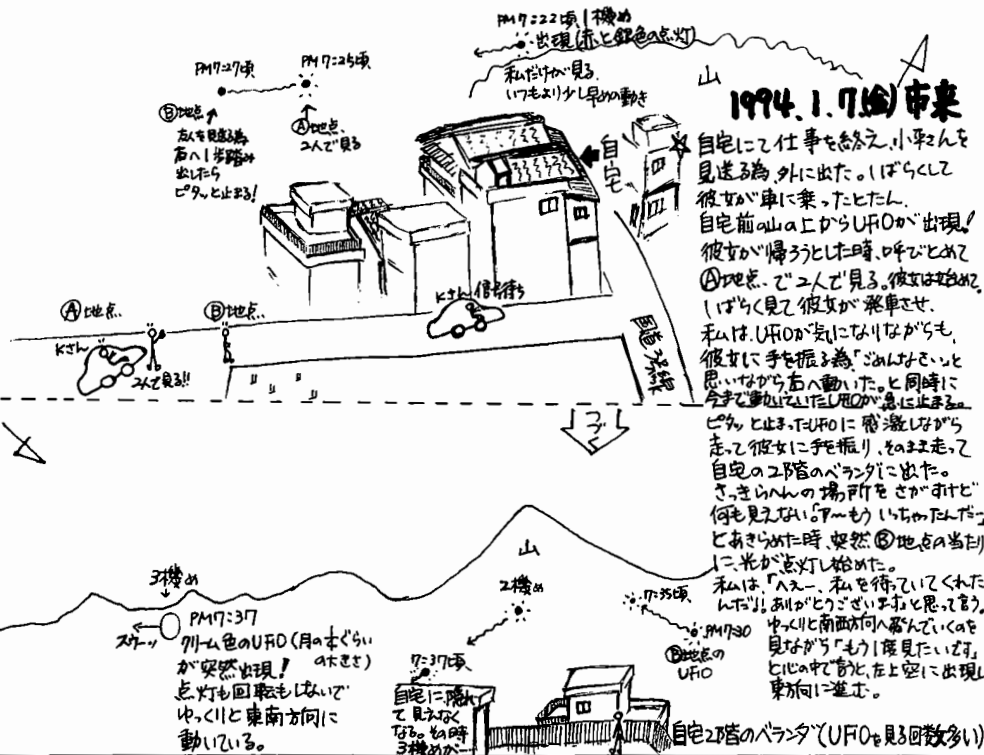 1994.1.7.(金)市来
PM7:22頃、1機め
出現(赤と銀色の点灯)
私だけが見る.
いつもより少し早めの動き
山
PM7:25頃
Ⓐ地点、
2人で見る
PM7:27頃
Ⓑ地点
友人を見送る為
右へ1歩踏み
出したら
ピタッと止まる!
自宅
Ⓐ地点、
Ⓑ地点、
Kさん
2人で見る!!
Kさん 信号待ち
国道3号線
つづく
自宅にて仕事を終え、小平さんを
見送る為、外に出た。しばらくして
彼女が車に乗ったとたん、
自宅前の山の上からUFOが出現!
彼女が帰ろうとした時、呼びとめて
Ⓐ地点、で2人で見る。彼女は始めて。
しばらく見て彼女が発車させ、
私は、UFOが気になりながらも、
彼女に手を振る為「ごめんなさい」と
思いながら右へ動いた。と同時に
今まで動いていたUFOが急に止まる。
ピタッと止まったUFOに感激しながら
走って彼女に手を振り、そのまま走って
自宅の2階のベランダに出た。
さっきらへんの場所をさがすけど
何も見えない「ア〜もういっちゃったんだー」
とあきらめた時、突然Ⓑ地点の当たり
に、光が点灯し始めた。
私は、「へぇー、私を待っていてくれた
んだ」!ありがとうございます」と思って言う。
ゆっくりと南西方向へ飛んでいくのを
見ながら「もう1度見たいです」
と心の中で言うと、左上空に出現し
東方向に進む。
山
3機め
PM7:37
スウーッ
クリーム色のUFO(月の本ぐらい
の大きさ)
が突然出現!
点灯も回転もしないで
ゆっくりと東南方向に
動いている。
2機め
7:37頃、
自宅に隠れ
て見えなく
なる。その時
3機めが
7:35頃、
PM7:30
Ⓑ地点の
UFO
自宅2階のベランダ(UFOを見る回数多い)